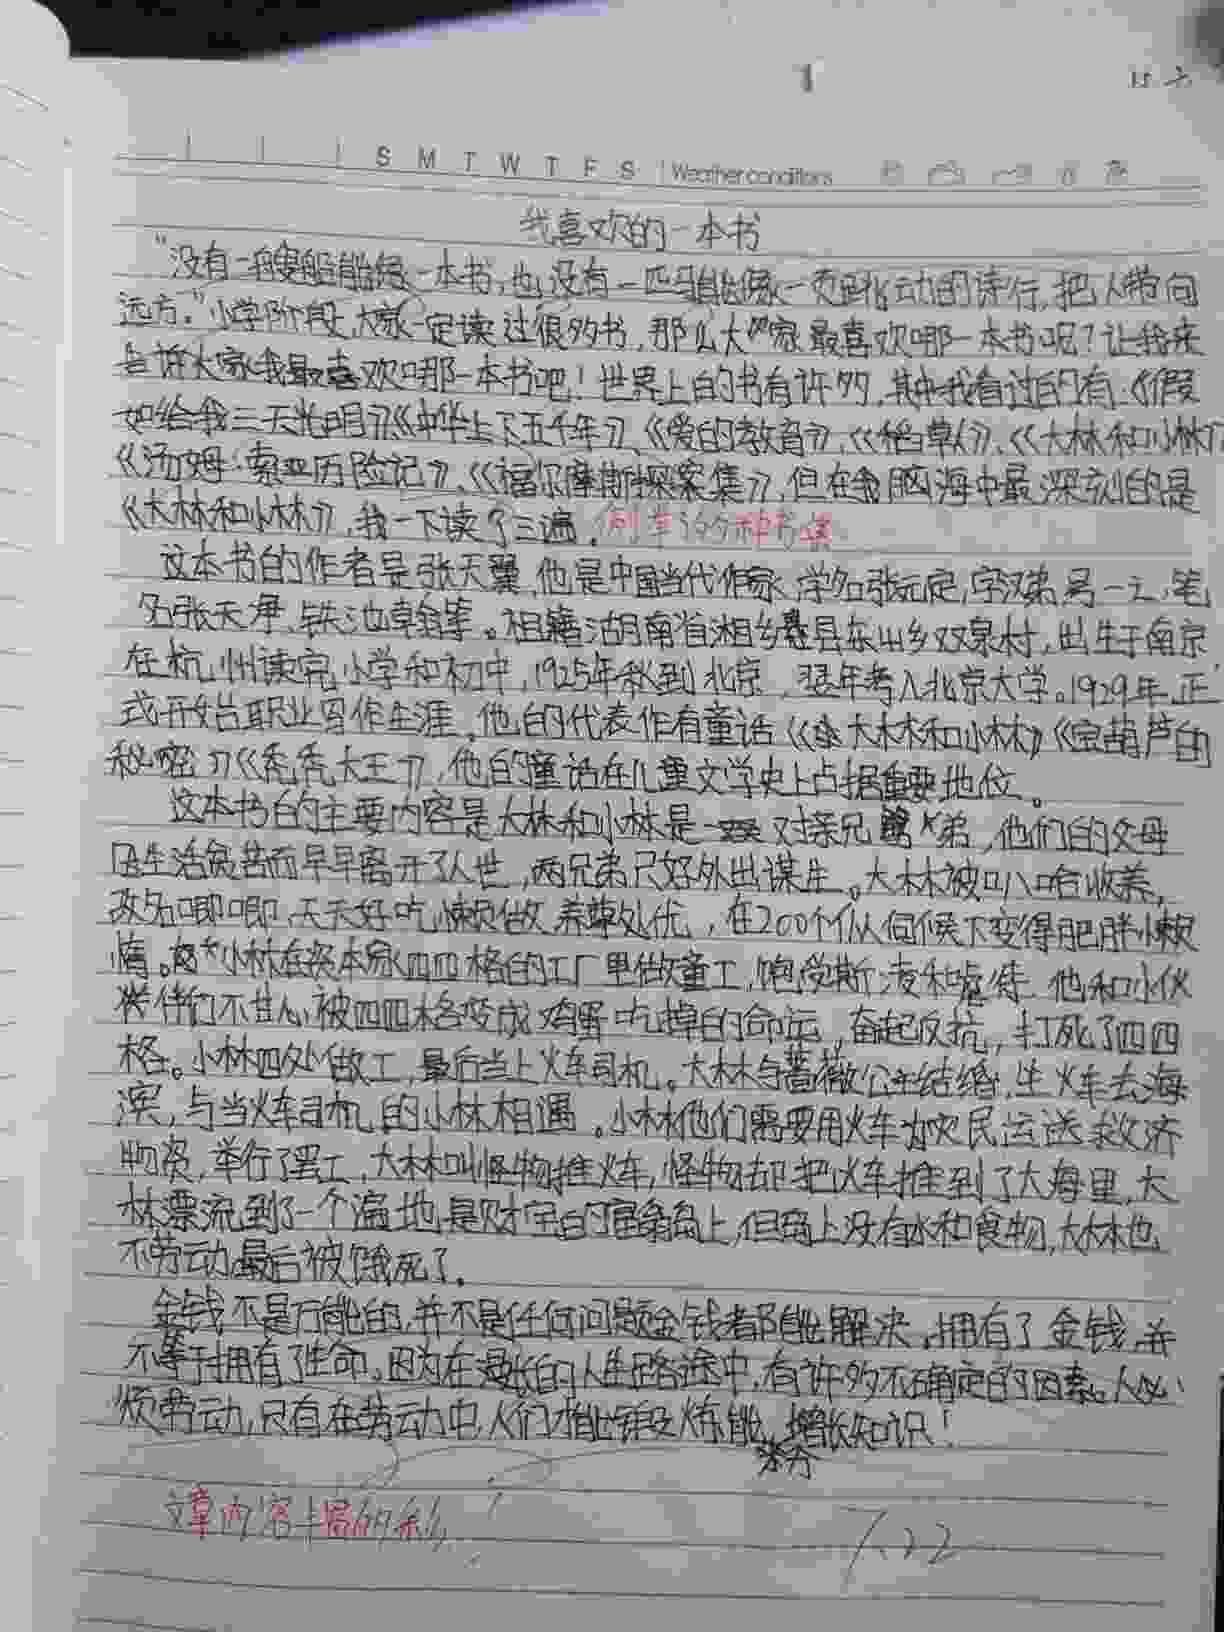 S M T W T F S Weather conditions
我喜欢的一本书
"没有一艘船能像一本书,也没有一匹马能像一页跳动的诗行,把人带向
远方。"小学阶段,大家一定读过很多书,那么大家最喜欢哪一本书呢?让我来
告诉大家我最喜欢哪一本书吧!世界上的书有许多,其中我看过的有:《假
如给我三天光明》《中华上下五千年》、《爱的教育》、《稻草人》、《大林和小林》
《汤姆·索亚历险记》、《福尔摩斯探案集》,但在我脑海中最深刻的是
《大林和小林》,我一下读了三遍。
这本书的作者是张天翼,他是中国当代作家、学名张元定,字汉弟,号一之,笔
名张天净、铁池翰等。祖籍湖南省湘乡县东山乡双泉村,出生于南京,
在杭州读完小学和初中,1925年秋到北京,翌年考入北京大学。1929年,正
式开始职业写作生涯。他的代表作有童话《大林和小林》《宝葫芦的
秘密》《秃秃大王》,他的童话在儿童文学史上占据重要地位。
这本书的主要内容是大林和小林是一对亲兄弟,他们的父母
因生活贫苦而早早离开了人世,两兄弟只好外出谋生。大林被叭哈收养,
改名唧唧,天天好吃懒做,养尊处优,在200个仆从伺候下变得肥胖懒
惰。小林在资本家四四格的工厂里做童工,饱受欺凌和虐待 他和小伙
伴们不甘心被四四格变成鸡蛋吃掉的命运,奋起反抗,打死了四四
格。小林四处做工,最后当上火车司机。大林与蔷薇公主结婚,坐火车去海
滨,与当火车司机的小林相遇。小林他们需要用火车为灾民运送救济
物资,举行了罢工,大林叫怪物推火车,怪物却把火车推到了大海里,大
林漂流到了一个遍地是财宝的富翁岛上,但岛上没有水和食物,大林也
不劳动最后被饿死了。
金钱不是万能的,并不是任何问题金钱都能解决,拥有了金钱,并
不等于拥有了生命。因为在漫长的人生路途中,有许多不确定的因素。人必
须劳动,只有在劳动中,人们才能锻炼能,增长知识!
文章内容丰富的
7.22